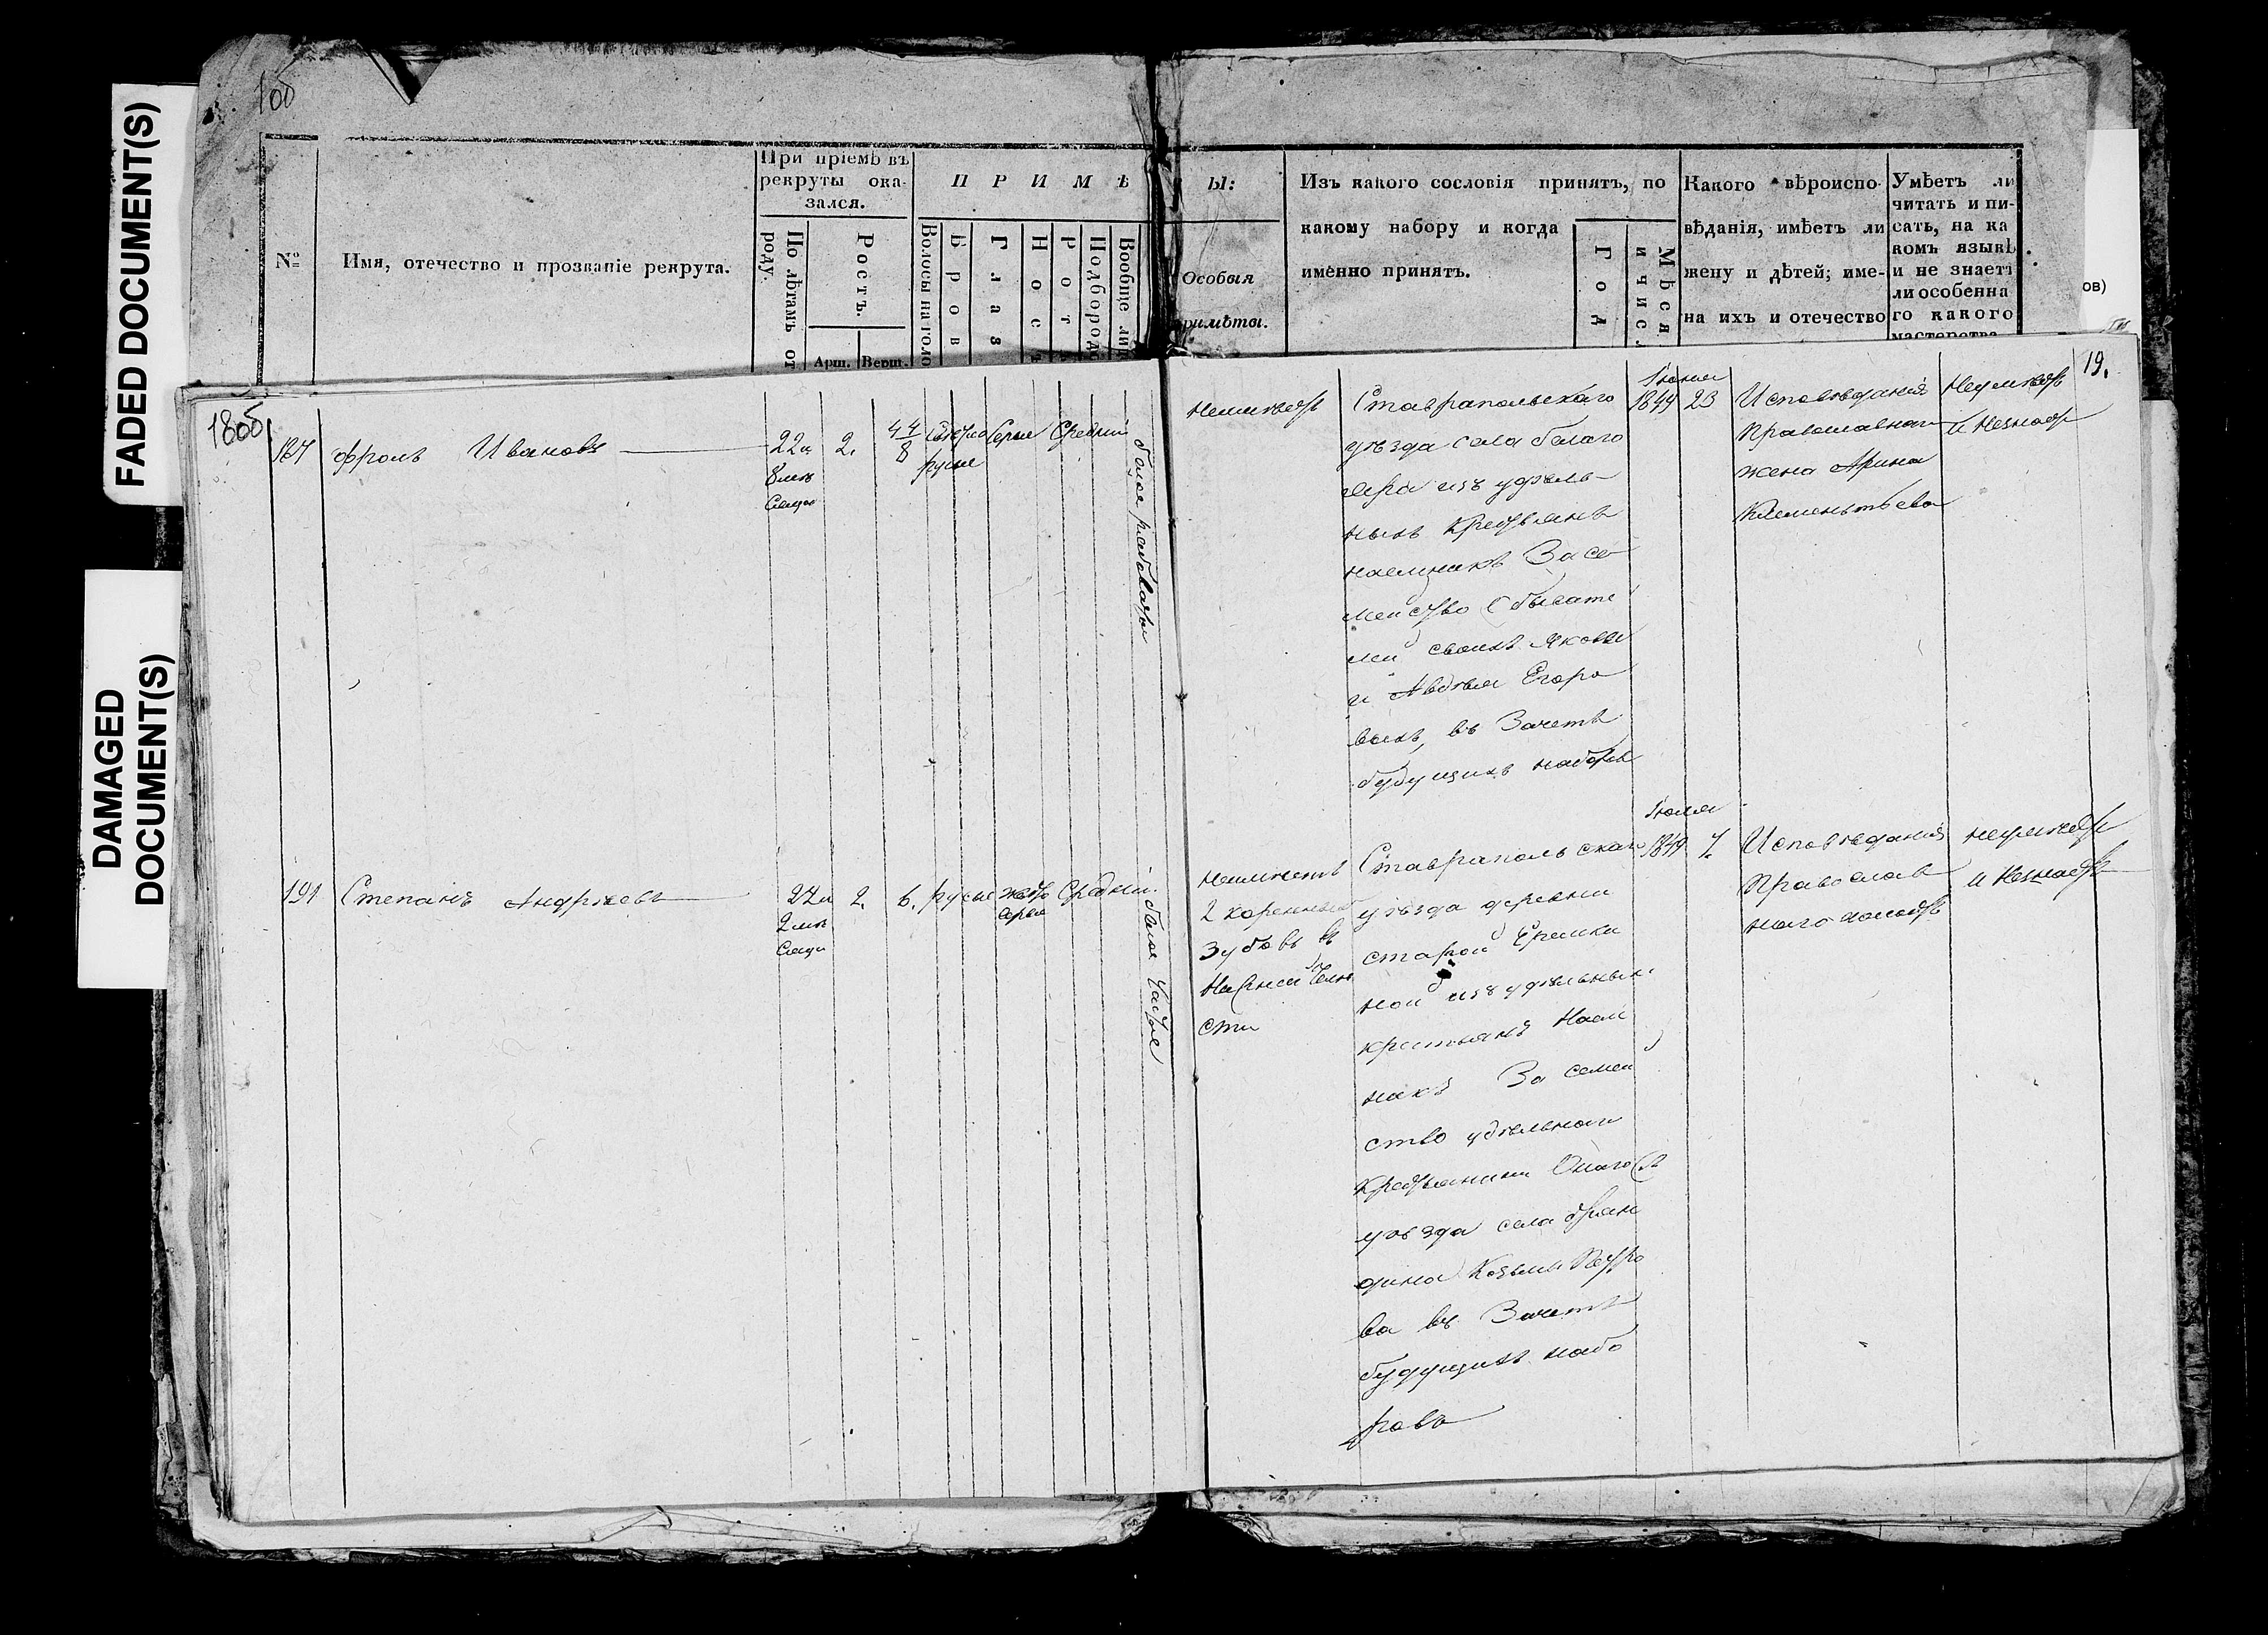 FADED DOCUMENT(S)
DAMAGED
DOCUMENT(S)
№
Имя, отечество и прозваніе рекрута.
При пріемѣ въ
рекруты ока-
зался.
По лѣтамъ от
роду.
Ростъ.
Арш.
Верш.
П Р И М Ѣ
Волосы на голо
Бров
Глаз
Носъ
Ротъ
Подбородо
Вообще лиц
Ы:
Особыя
римѣты.
Изъ какого сословія принятъ, по
какому набору и когда
именно принятъ.
Год
Мѣся.
и чис.
Какого вѣроиспо-
вѣданія, имѣетъ ли
жену и дѣтей; име-
на ихъ и отечество
Умѣетъ ли
читать и пи-
сать, на ка
комъ языкѣ
и не знаетъ
ли особенна
го какого
мастерства
ов)
19.
Фролъ Ивановъ
22
2.
4 4/8
русые
Серые
Средній
белое рябоватое
Неимѣетъ
Ставрапольскаго
уѣзда села Благо
изъ удѣль-
ныхъ крестьянъ
наемщикъ За се-
мейство
своихъ Якова
и Авдѣя Егоро
выхъ, въ Зачетъ
будущихъ наборовъ
Іюня
1849 23
Исповѣданія
Православнаго
жена Арина
Клементьева
Неумѣетъ
и Незнаетъ
191
Степанъ Андрѣевъ
2.
6.
русые
Средній
белое чистое
Неимѣетъ
2 коренныхъ
Зубовъ въ
Ставрапольскаго
уѣзда деревни
старой
ной изъ удѣльныхъ
крестьянъ Наем
никъ За семей
ство удѣльнаго
Крестьянина
уѣзда села
Козьмы Петро
ва въ Зачетъ
будущихъ набо
ровъ
Іюля
1849 7.
Исповѣданія
Православ
наго холостъ
неумѣетъ
и Незнаетъ